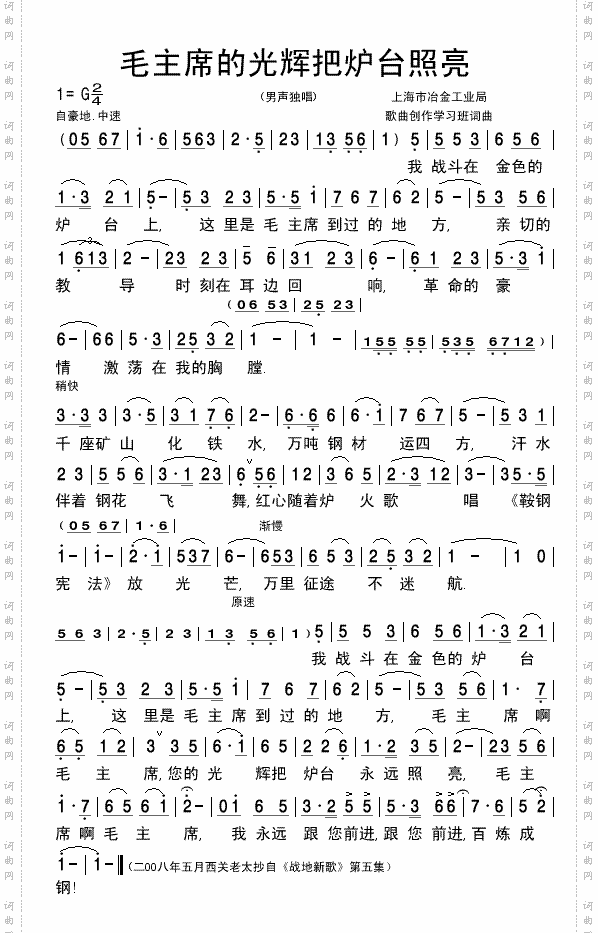 毛主席的光辉把炉台照亮
1=G 2/4 （男声独唱） 上海市冶金工业局
自豪地.中速 歌曲创作学习班词曲
(05 67 | i·6 | 563 | 2·5 | 23 | 13 56 | 1) 5 | 5 5 3 | 6 5 6 |
我 战斗在 金色的
1·3 2 1 | 5- | 5 3 2 3 | 5·5 i | 7 6 7 | 6 2 | 5- | 5 3 5 6 |
炉 台 上, 这 里是 毛 主席 到过 的 地 方, 亲切的
3
1 613 | 2- | 23 23 | 5 6 | 31 23 | 6- | 61 23 | 5·3 i |
教 导 时 刻在 耳 边 回 响, 革 命的 豪
(06 53 | 25 23 |
6- | 66 | 5·3 | 25 32 | 1- | 1- | 155 55 | 535 6712 ) |
情 激 荡 在 我的胸 膛.
稍快
3·3 3 | 3·5 | 3 1 7 6 | 2- | 6·6 6 | 6·i | 7 67 | 5- | 5 3 1 |
千 座矿 山 化 铁 水, 万吨 钢 材 运四 方, 汗 水
2 3 | 5 5 6 | 3·1 23 | 6 ∨ 56 | 12 | 3 6 5 | 2·3 12 | 3- | 35·5 |
伴着 钢花 飞 舞,红心随着炉 火 歌 唱 《鞍钢
(05 67 | i·6 | 渐慢
i- | i- | 2·i | 537 | 6- | 653 | 6 5 3 | 2 5 3 2 | 1- | 1 0 |
宪 法》 放 光 芒, 万里 征途 不 迷 航.
原速
5 6 3 | 2·5 | 2 3 | 1 3 5 6 | 1 ) 5 | 5 5 3 | 6 5 6 | 1·3 2 1 |
我 战 斗 在 金 色的 炉 台
5- | 5 3 2 3 | 5·5 i | 7 6 7 | 6 2 | 5- | 5 3 | 5 6 | 1·7 |
上, 这 里是 毛 主 席 到 过 的 地 方, 毛 主 席啊
6 5 1 2 | 3 ∨ 3 5 | 6·i | 6 5 | 2 2 6 | 1·2 3 5 | 2- | 23 5 6 |
毛 主 席,您的 光 辉把 炉台 永 远照 亮, 毛 主
i·7 | 6 5 6 i | 2- | 0i 6 5 | 3·2 5 5 | 3·2 6 6 | 7·6 | 5 2 |
席 啊 毛 主 席, 我 永远 跟 您前进,跟 您 前进,百 炼 成
i- | i- ‖(二00八年五月西关老太抄自《战地新歌》第五集)
钢!
词曲网